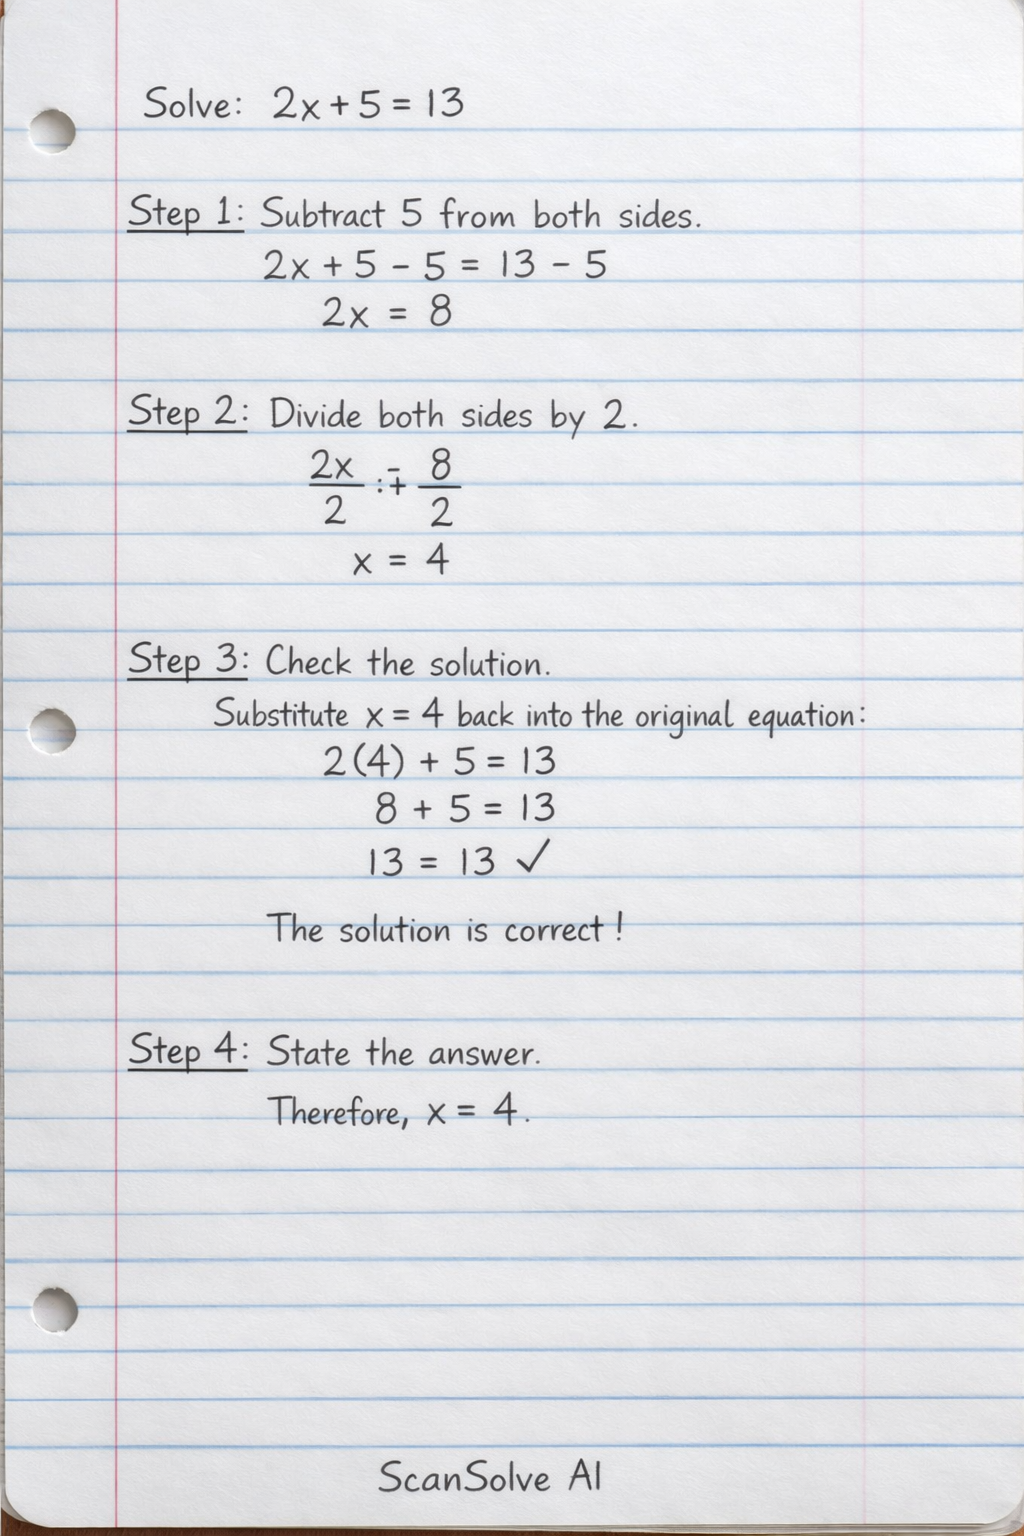 Solve: 2x + 5 = 13
Step 1: Subtract 5 from both sides.
2x + 5 - 5 = 13 - 5
2x = 8
Step 2: Divide both sides by 2.
2x/2 8/2
x = 4
Step 3: Check the solution.
Substitute x = 4 back into the original equation:
2(4) + 5 = 13
8 + 5 = 13
13 = 13 ✓
The solution is correct!
Step 4: State the answer.
Therefore, x = 4.
ScanSolve AI